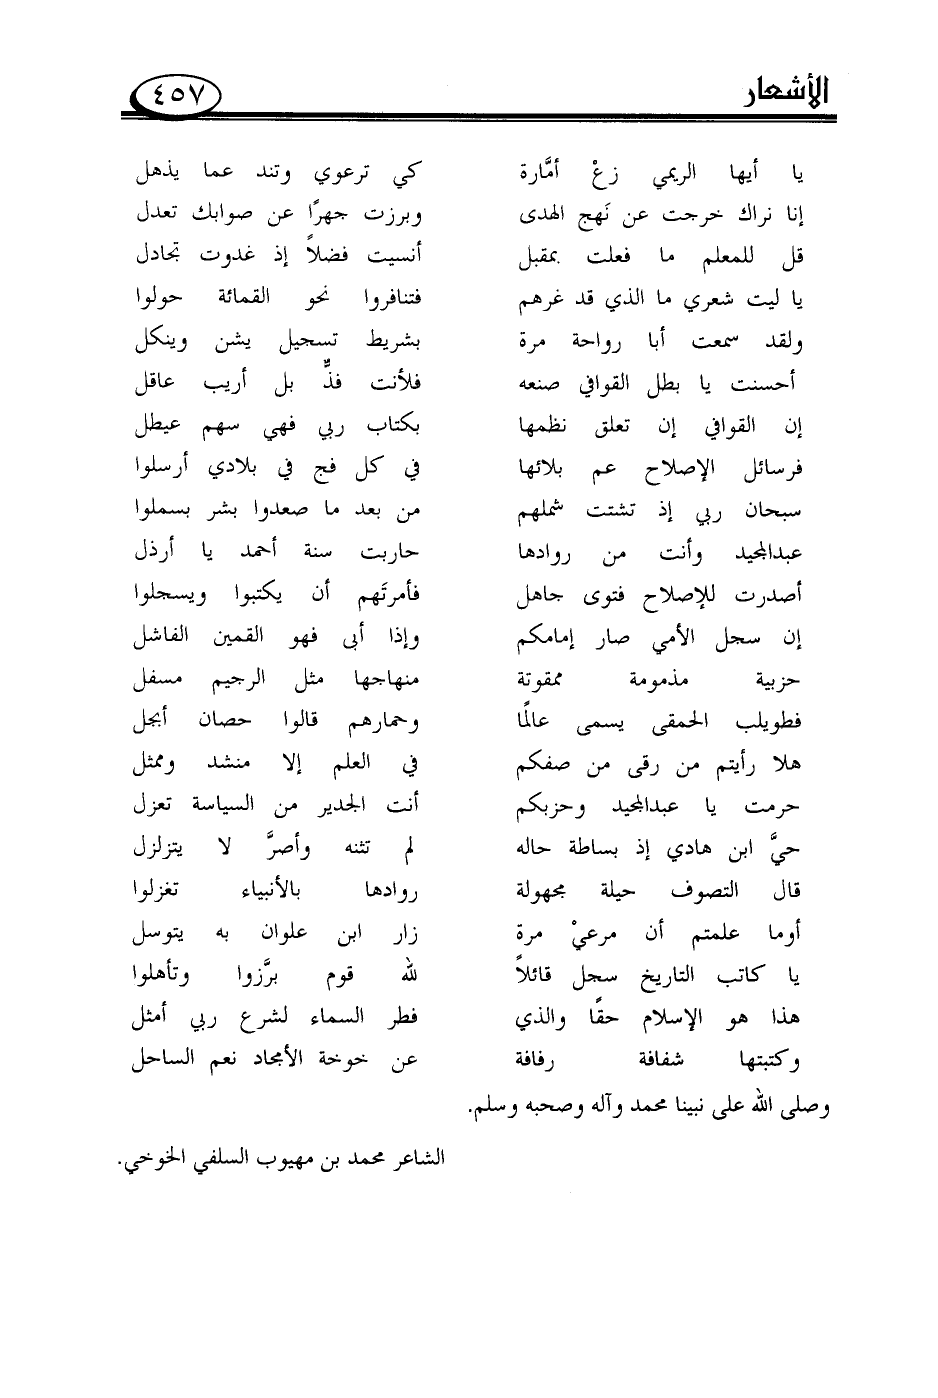 الأشعار ٤٥٧
يا أيها الريمي زغْ أمَّارة كي ترعوي وتند عما يذهل
إنا نراك خرجت عن نَهج الهدى وبرزت جهرًا عن صوابك تعدل
قل للمعلم ما فعلت بمقبل أنسيت فضلاً إذ غدوت تجادل
يا ليت شعري ما الذي قد غرهم فتنافروا نحو القمائة حولوا
ولقد سمعت أبا رواحة مرة بشريط تسجيل يشن وينكل
أحسنت يا بطل القوافي صنعه فلأنت فذٌّ بل أريب عاقل
إن القوافي إن تعلق نظمها بكتاب ربي فهي سهم عيطل
فرسائل الإصلاح عم بلائها في كل فج في بلادي أرسلوا
سبحان ربي إذ تشتت شملهم من بعد ما صعدوا بشر بسملوا
عبدالمجيد وأنت من روادها حاربت سنة أحمد يا أرذل
أصدرت للإصلاح فتوى جاهل فأمرتَهم أن يكتبوا ويسجلوا
إن سجل الأمي صار إمامكم وإذا أبى فهو القمين الفاشل
حزبية مذمومة ممقوتة منهاجها مثل الرجيم مسفل
فطويلب الحمقى يسمى عالمًا وحمارهم قالوا حصان أبجل
هلا رأيتم من رقى من صفكم في العلم إلا منشد وممثل
حرمت يا عبدالمجيد وحزبكم أنت الجدير من السياسة تعزل
حيَّ ابن هادي إذ بساطة حاله لم تثنه وأصرَّ لا يتزلزل
قال التصوف حيلة مجهولة روادها بالأنبياء تغزلوا
أوما علمتم أن مرعيْ مرة زار ابن علوان به يتوسل
يا كاتب التاريخ سجل قائلاً لله قوم برَّزوا وتأهلوا
هذا هو الإسلام حقًا والذي فطر السماء لشرع ربي أمثل
وكتبتها شفافة رفافة عن خوخة الأمجاد نعم الساحل
وصلى الله على نبينا محمد وآله وصحبه وسلم.
الشاعر محمد بن مهيوب السلفي الخوخي.